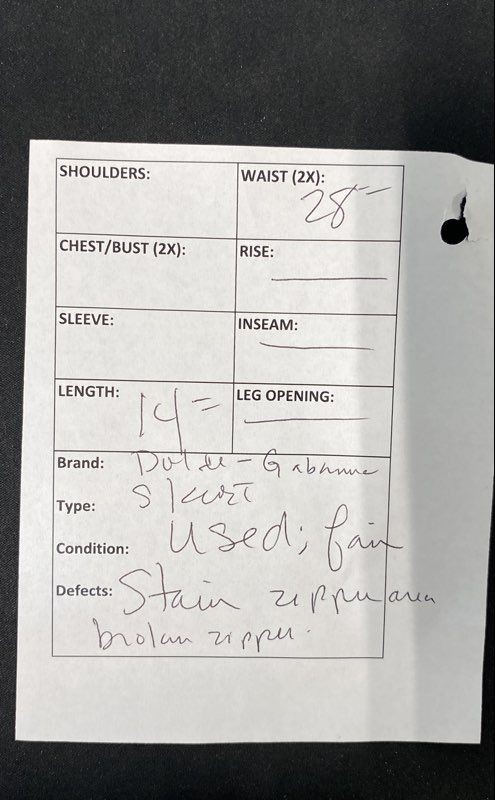 SHOULDERS:
WAIST (2X): 28"
CHEST/BUST (2X):
RISE: —
SLEEVE:
INSEAM: —
LENGTH: 14"
LEG OPENING: —
Brand: Dolce - Gabanna
Type: Skirt
Condition: Used; fair
Defects: Stain zipper area
broken zipper.